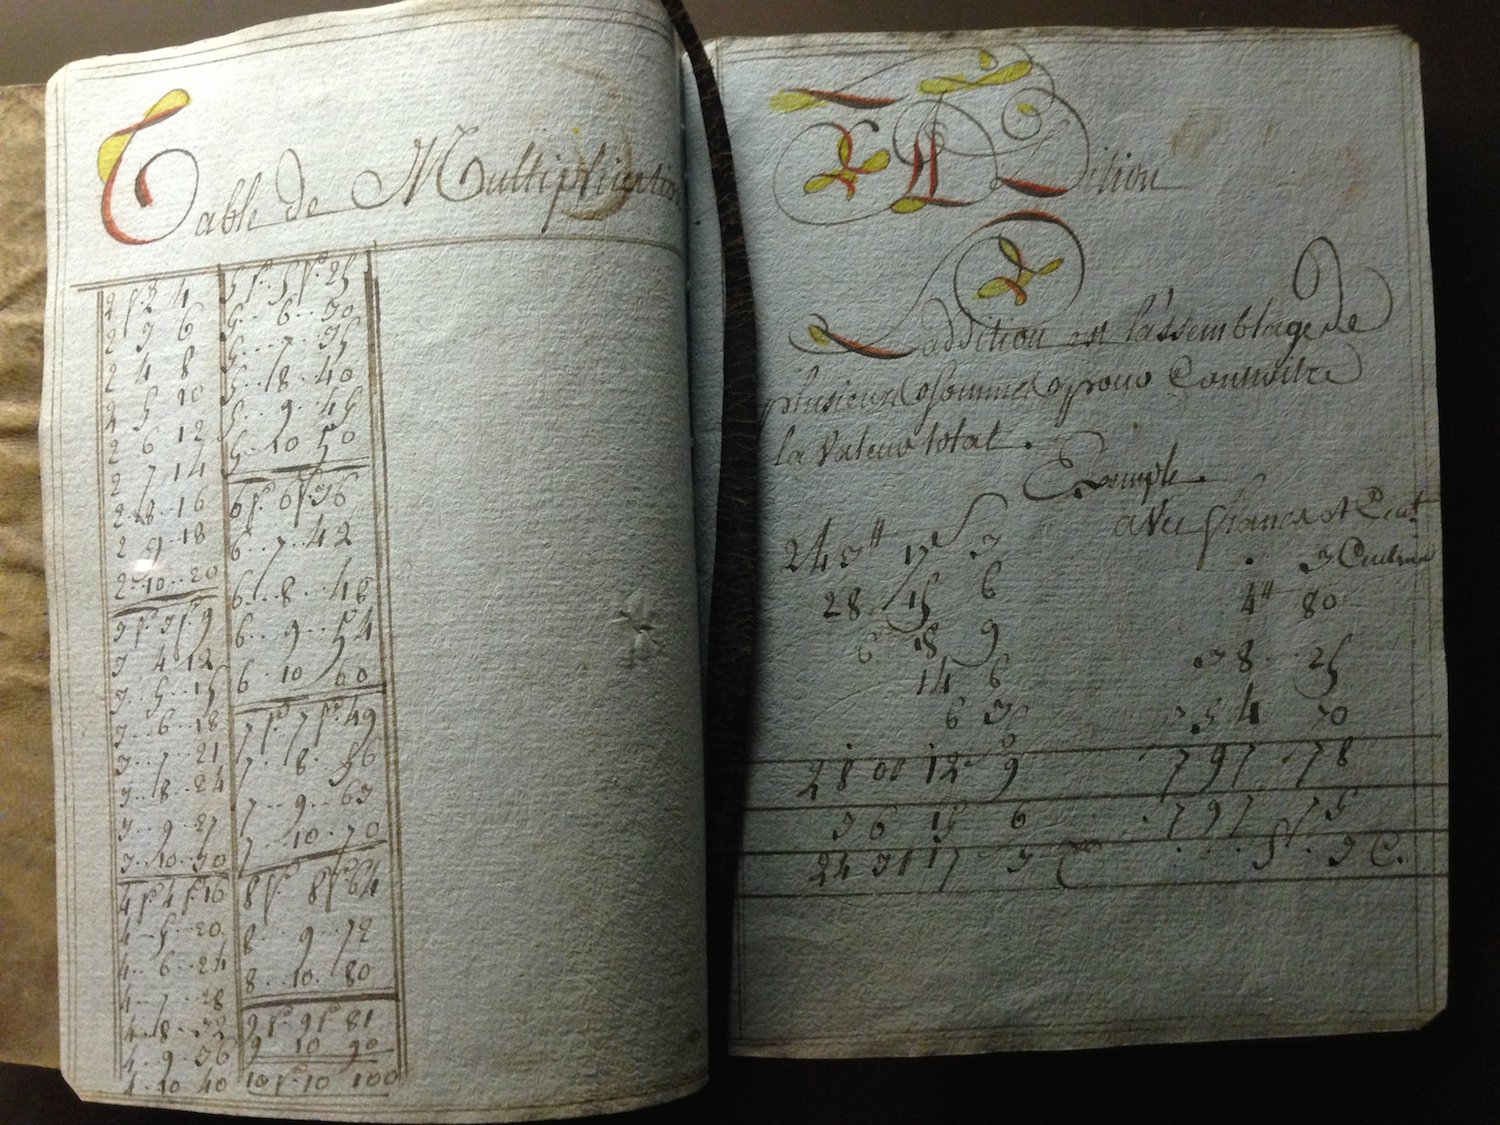 Table de Multiplication
2 f. 2 4
2 3 6
2 4 8
2 5 10
2 6 12
2 7 14
2 8 16
2 9 18
2 10 20
3 f. 3 f. 9
3 4 12
3 5 15
3 6 18
3 7 21
3 8 24
3 9 27
3 10 30
4 f. 4 f. 16
4 5 20
4 6 24
4 7 28
4 8 32
4 9 36
4 10 40
5 f. 5 f. 25
5 6 30
5 7 35
5 8 40
5 9 45
5 10 50
6 f. 6 f. 36
6 7 42
6 8 48
6 9 54
6 10 60
7 f. 7 f. 49
7 8 56
7 9 63
7 10 70
8 f. 8 f. 64
8 9 72
8 10 80
9 f. 9 f. 81
9 10 90
10 f. 10 100
Adition
Laddition est lassemblage de
plusieurs sommes pour Connoitre
la valeur total.
Exemple
avec francs et Cent.
243 17 3
28 15 6
6 18 9
14 6
6 3
12 9
36 15 6
17 3
3 Centimes
4 80
38 25
354 30
797 78
797 75
3 C.